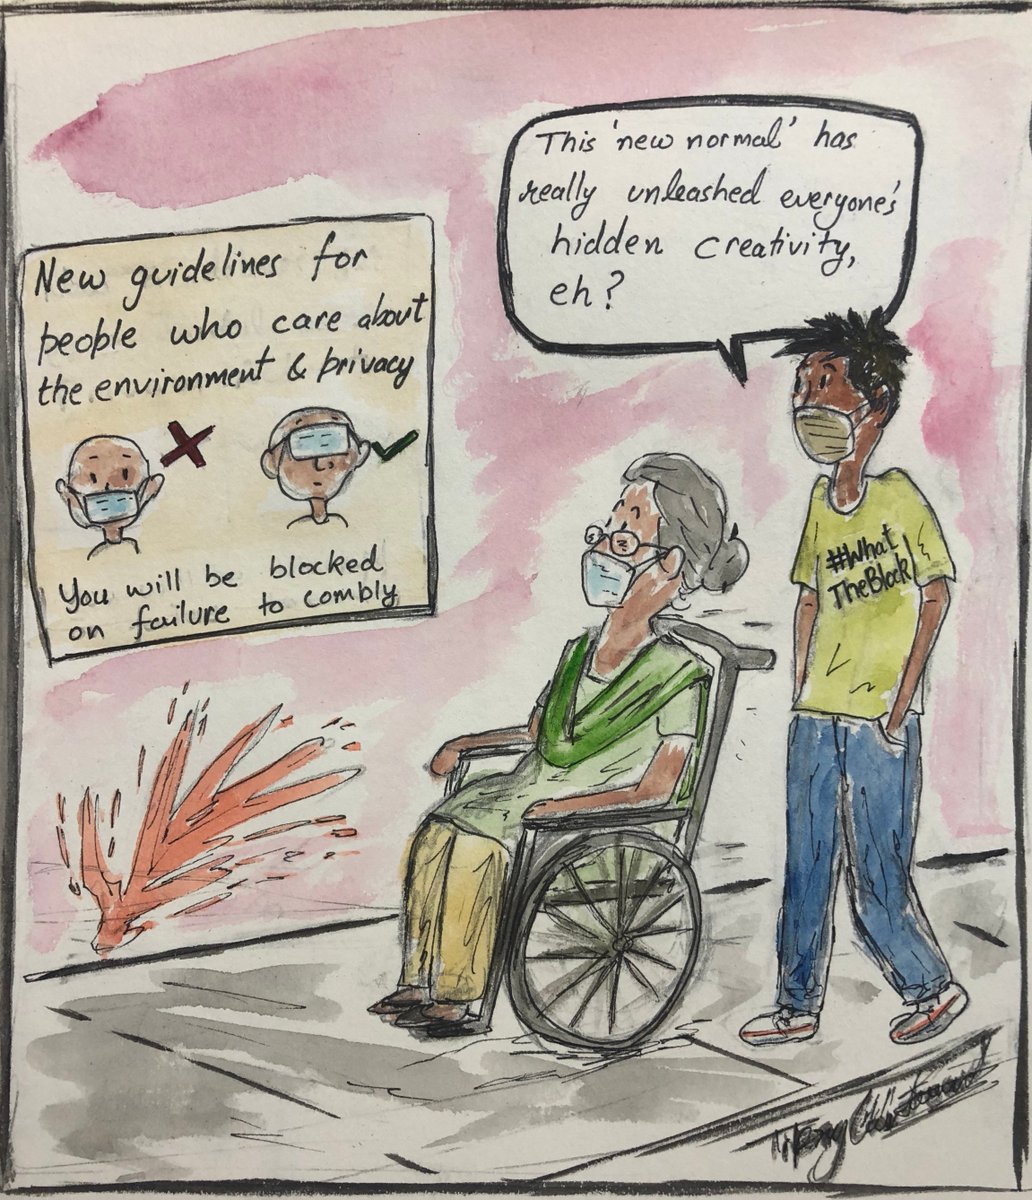 This 'new normal' has
really unleashed everyone's
hidden creativity,
eh?
New guidelines for
people who care about
the environment & privacy
You will be blocked
on failure to combly
#What
TheBlock